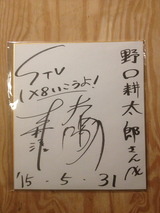 野口耕太郎さん江
STV
1×8いこうよ!
'15・5・31